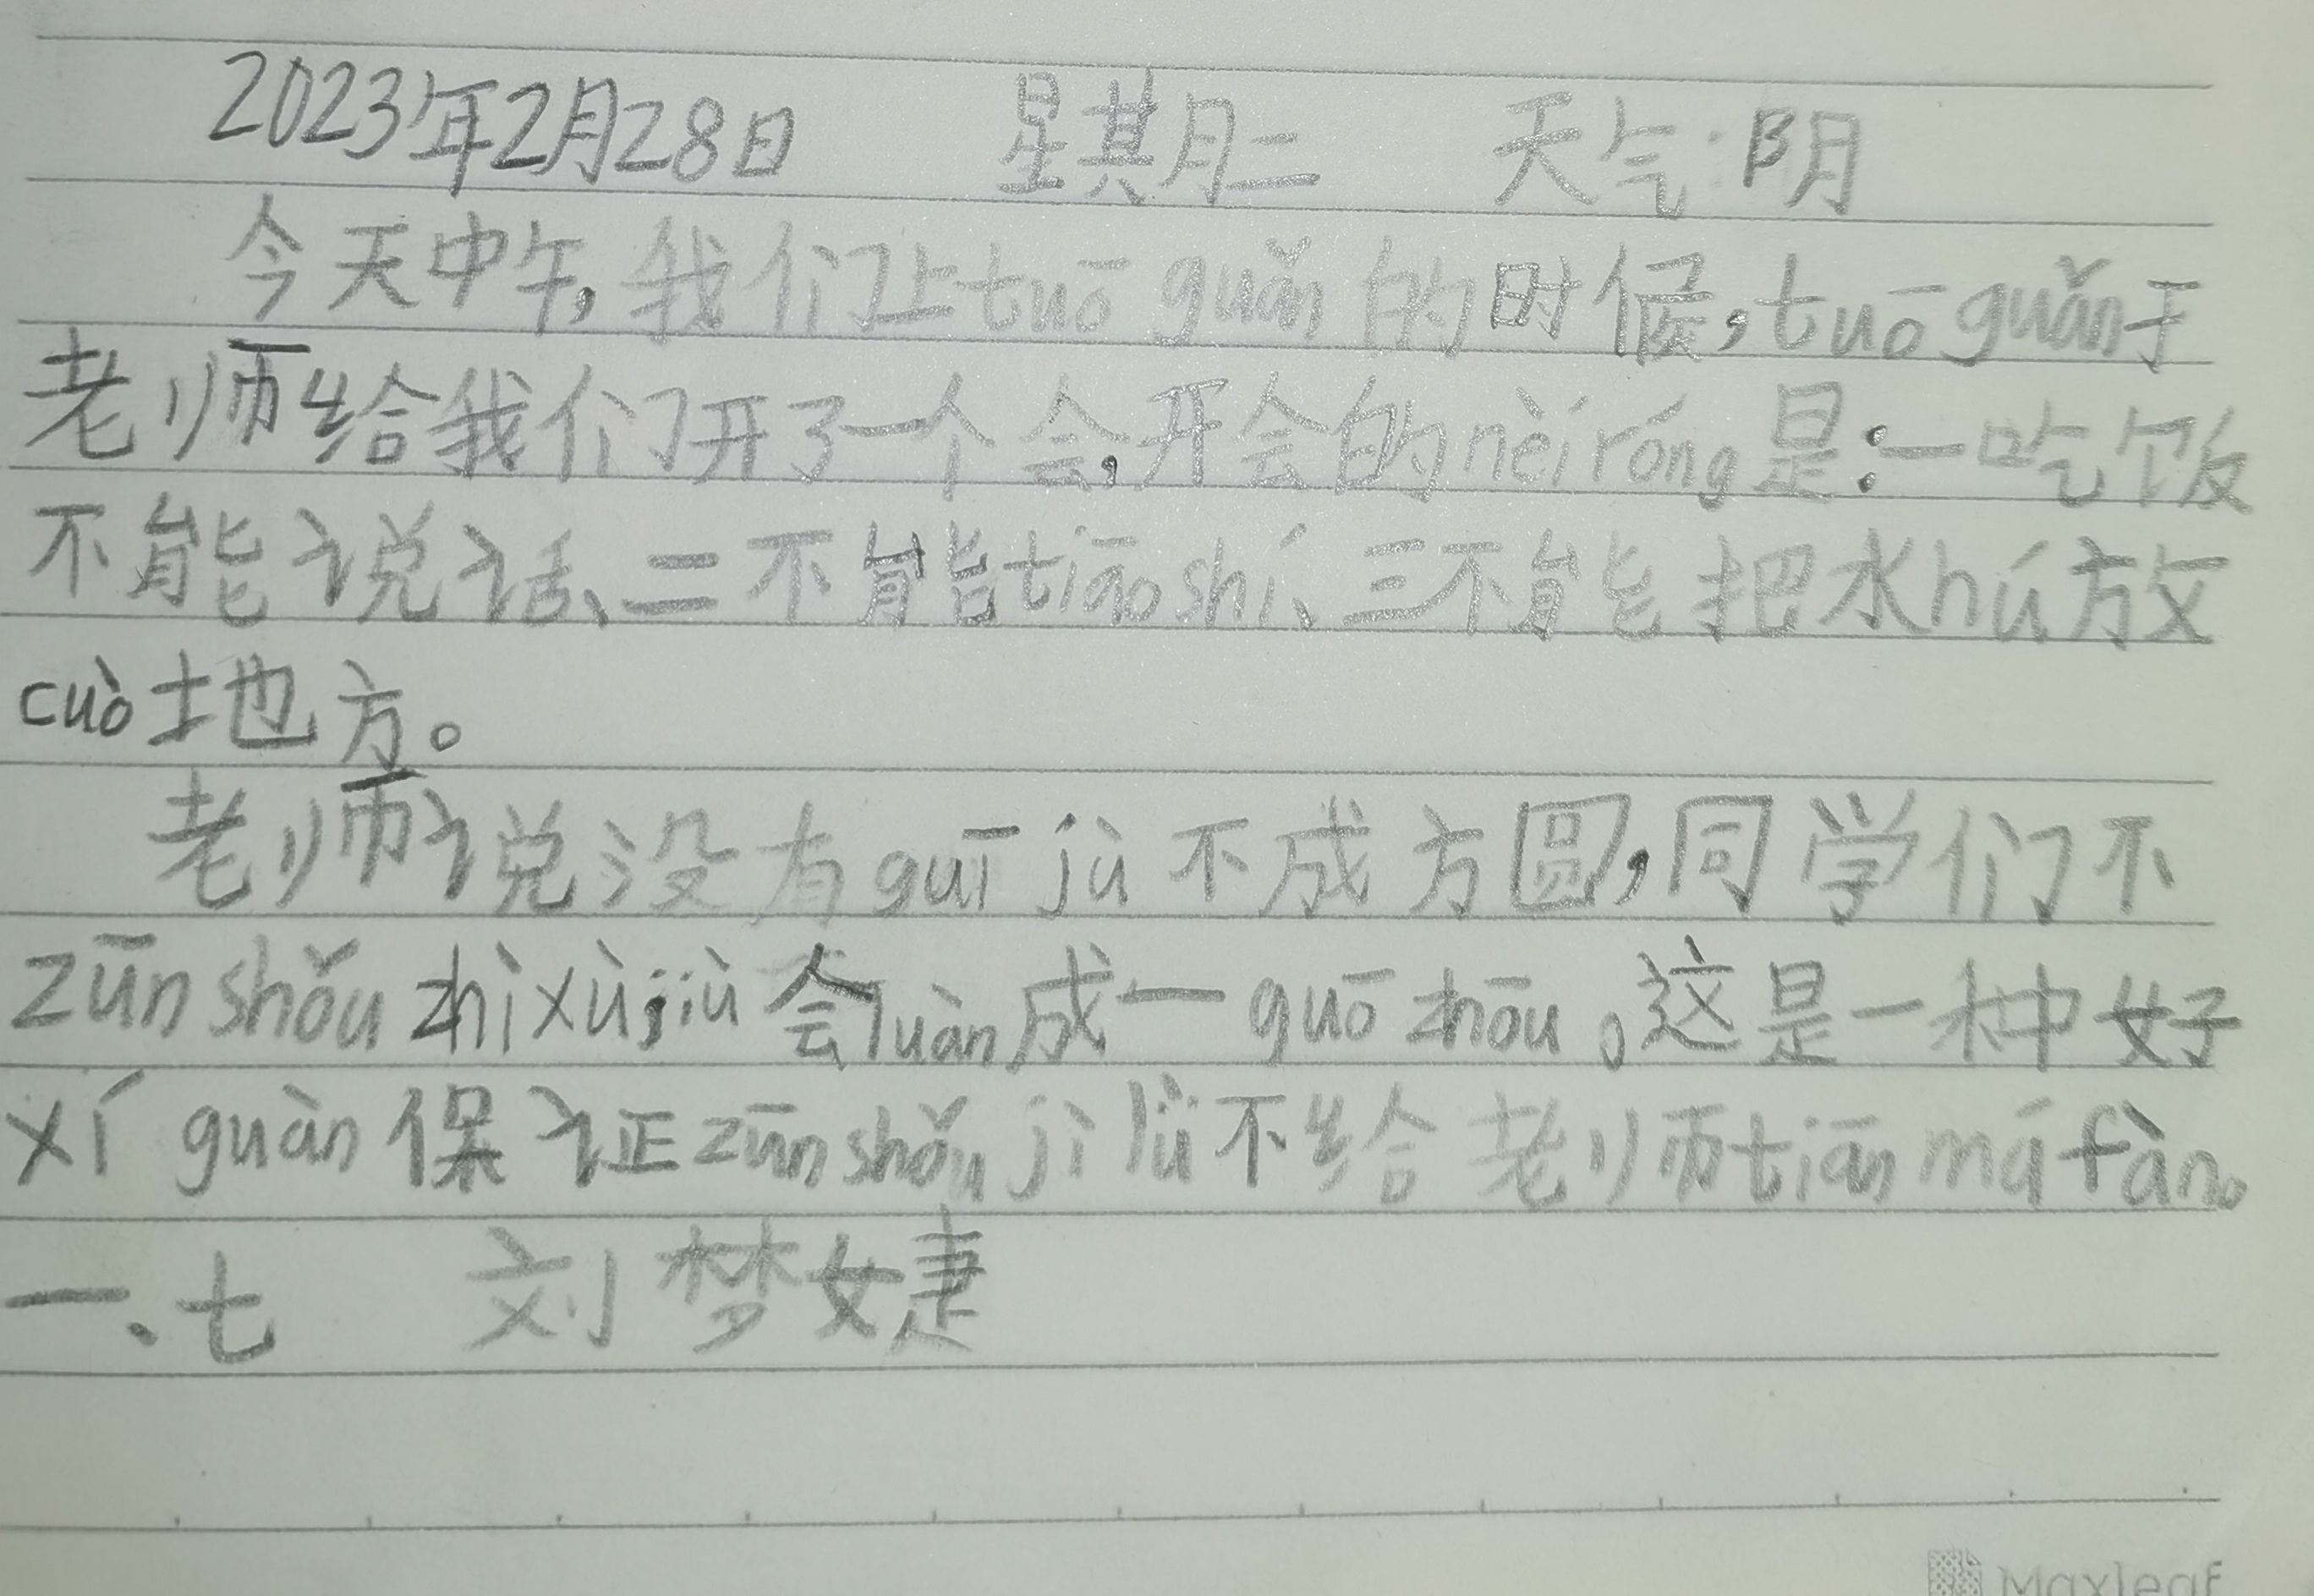 2023年2月28日 星期二 天气:阴
今天中午,我们上tuō guǎn的时候,tuō guǎn于
老师给我们开了一个会,开会的nèi róng是:一吃饭
不能说话、二不能tiāo shí、三不能把水hú放
cuò地方。
老师说没有guī jù不成方圆,同学们不
zūn shǒu zhì xù jiù会luàn成一guō zhōu。这是一种好
xí guàn保证zūn shǒu jì lǜ不给老师tiān má fàn。
一、七 刘梦婕
Maxleaf